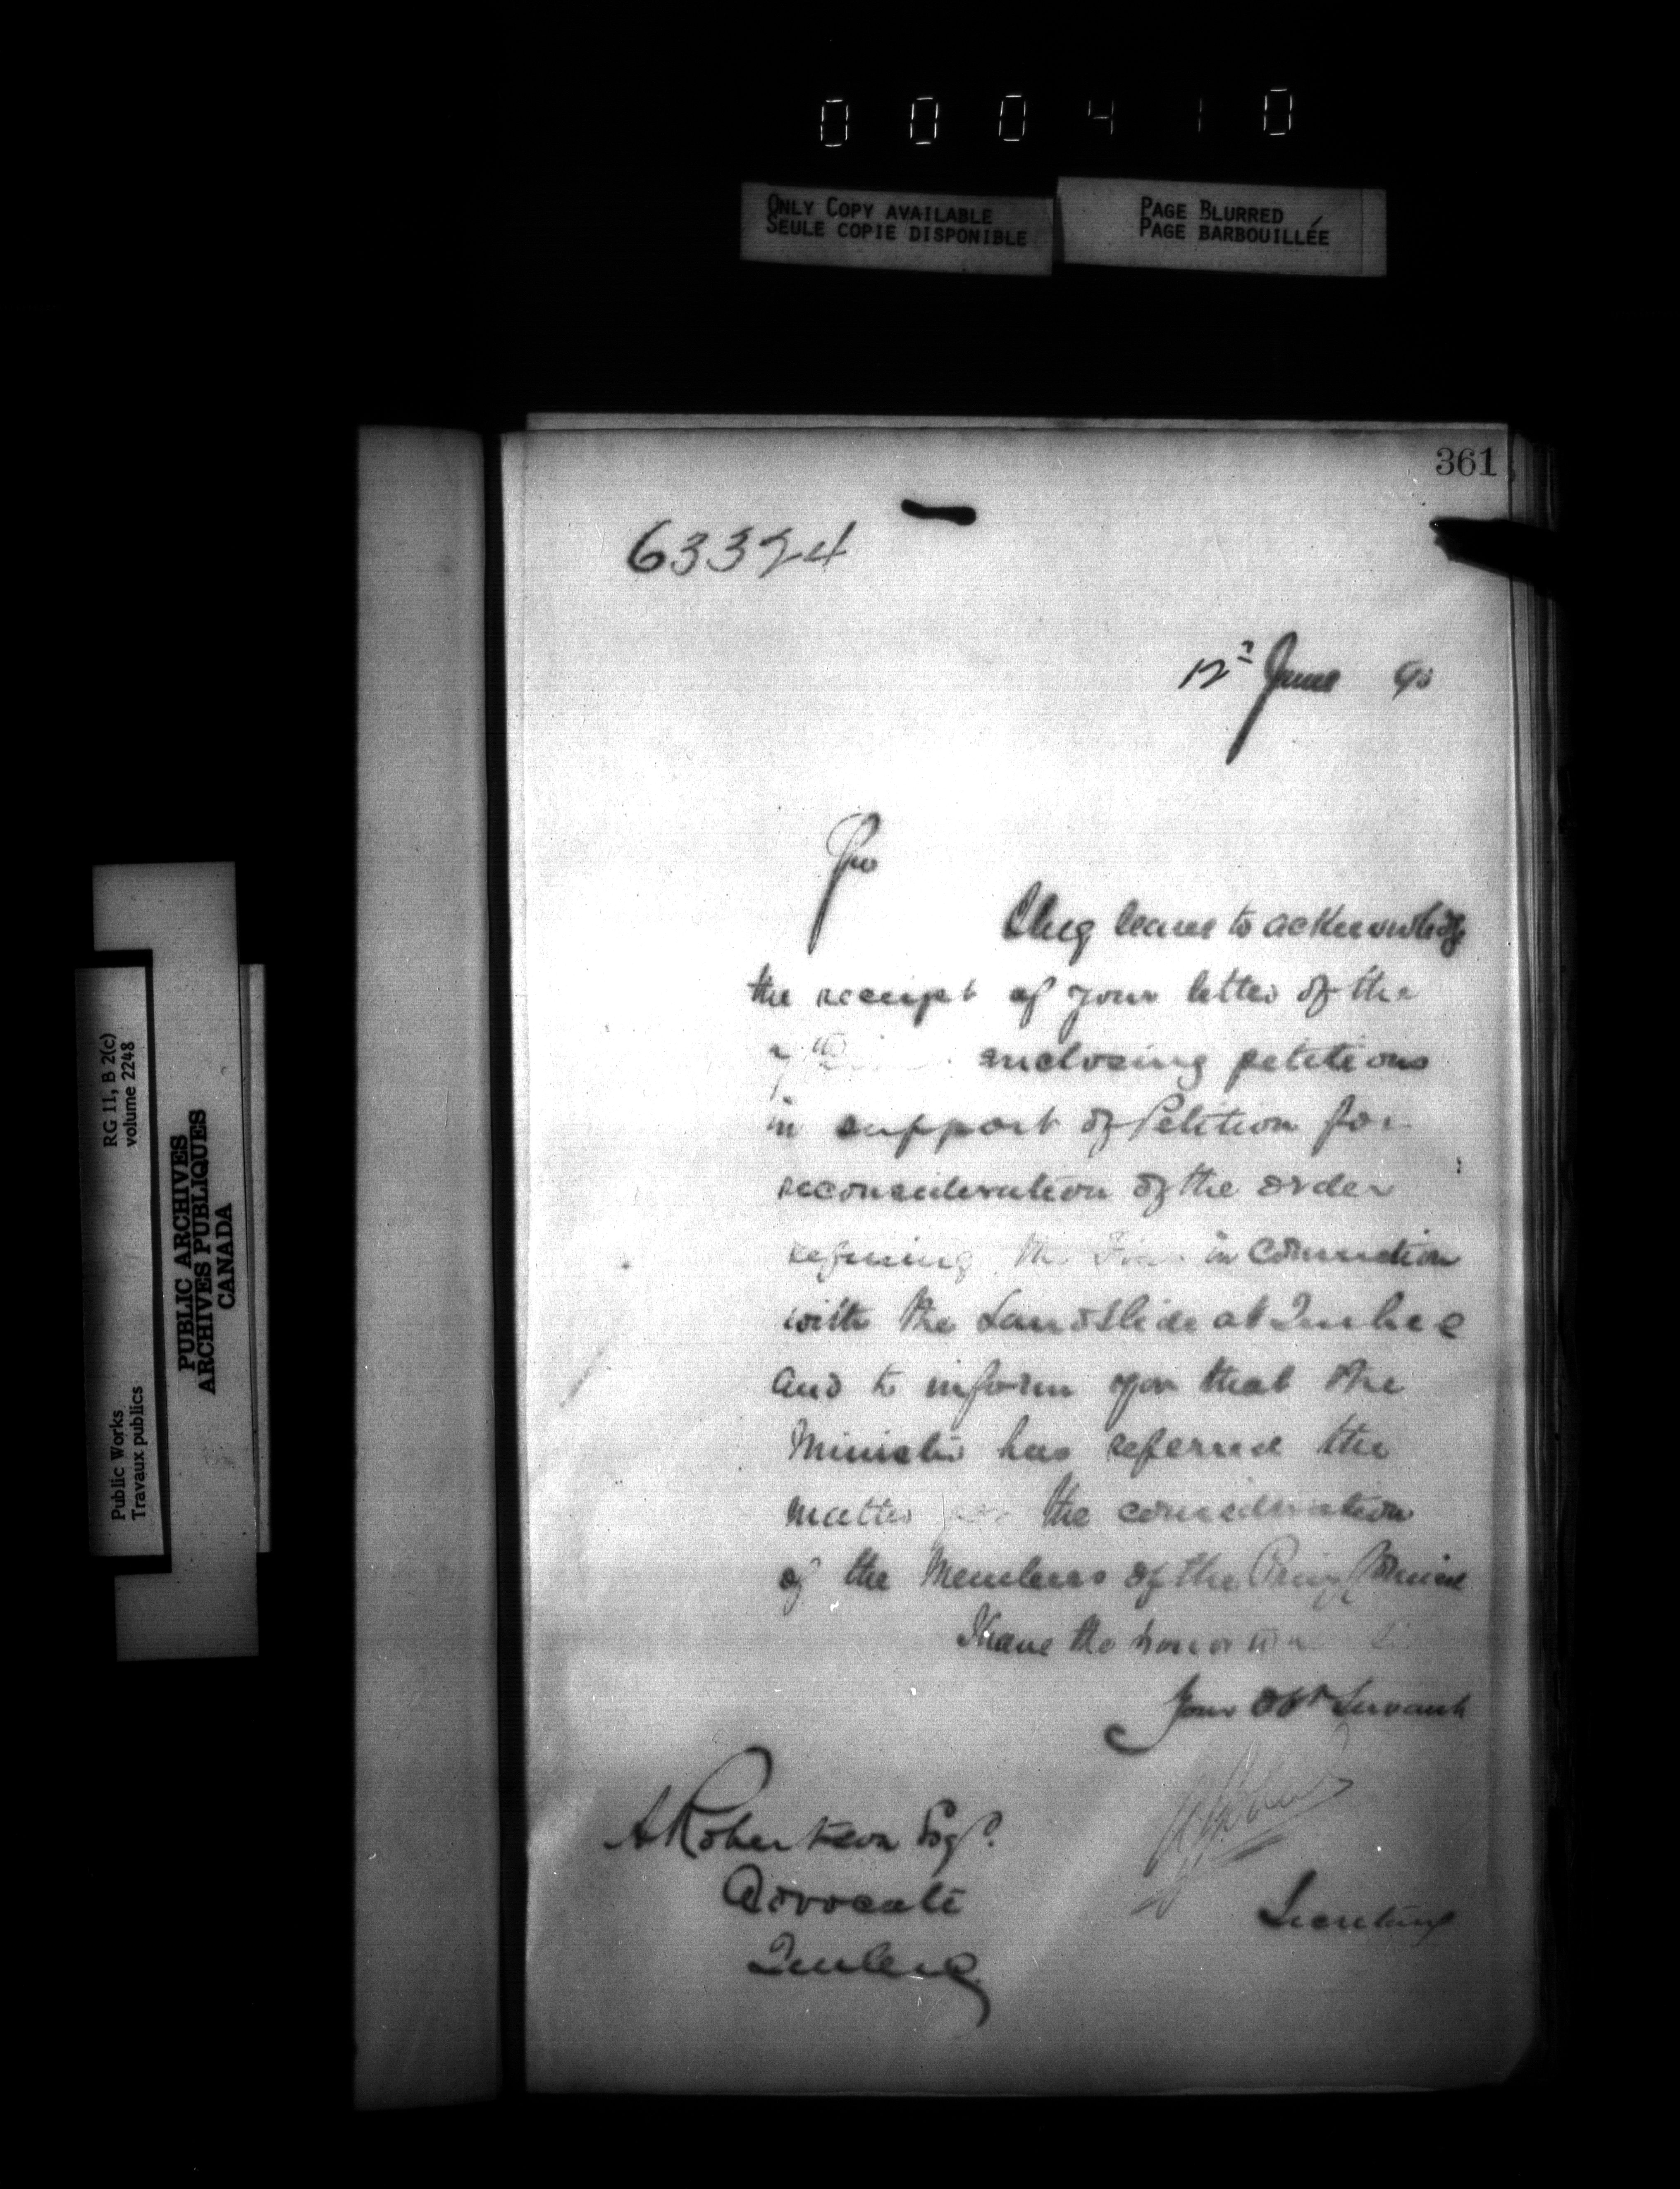 000410
ONLY COPY AVAILABLE
SEULE COPIE DISPONIBLE
PAGE BLURRED
PAGE BARBOUILLÉE
RG 11, B 2(c)
volume 2248
PUBLIC ARCHIVES
ARCHIVES PUBLIQUES
CANADA
Public Works
Travaux publics
361
63324
12th June 90
Sir
I beg leave to acknowledge
the receipt of your letter of the
enclosing petitions
in support of Petition for
reconsideration of the order
the in connection
with the Landslide at Quebec
and to inform you that the
Minister has referred the
matter for the consideration
of the Members of the Privy Council
I have the honor
Your Obt Servant
A Robertson Esqr.
Advocate
Quebec
Secretary